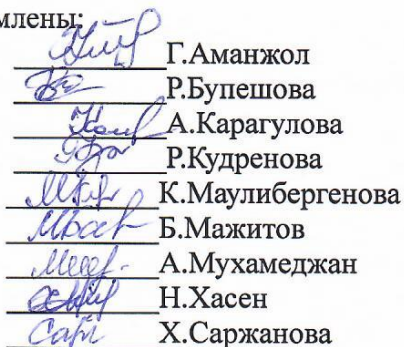 млены:
Г.Аманжол
Р.Бупешова
А.Карагулова
Р.Кудренова
К.Маулибергенова
Б.Мажитов
А.Мухамеджан
Н.Хасен
Х.Саржанова